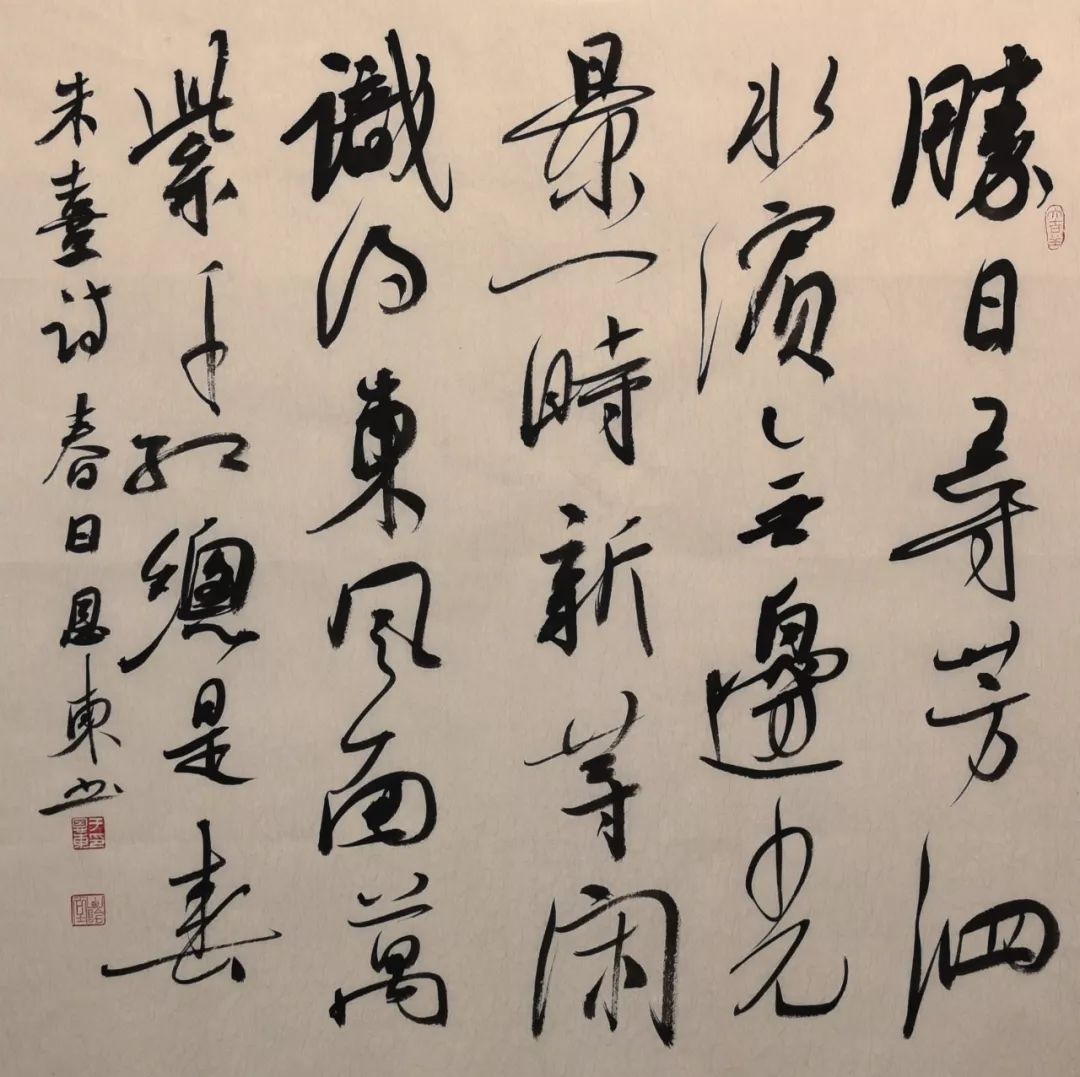 勝日尋芳泗
水濱無邊光
景一時新等閑
識得東風面萬
紫千紅總是春
朱熹詩春日恩東书